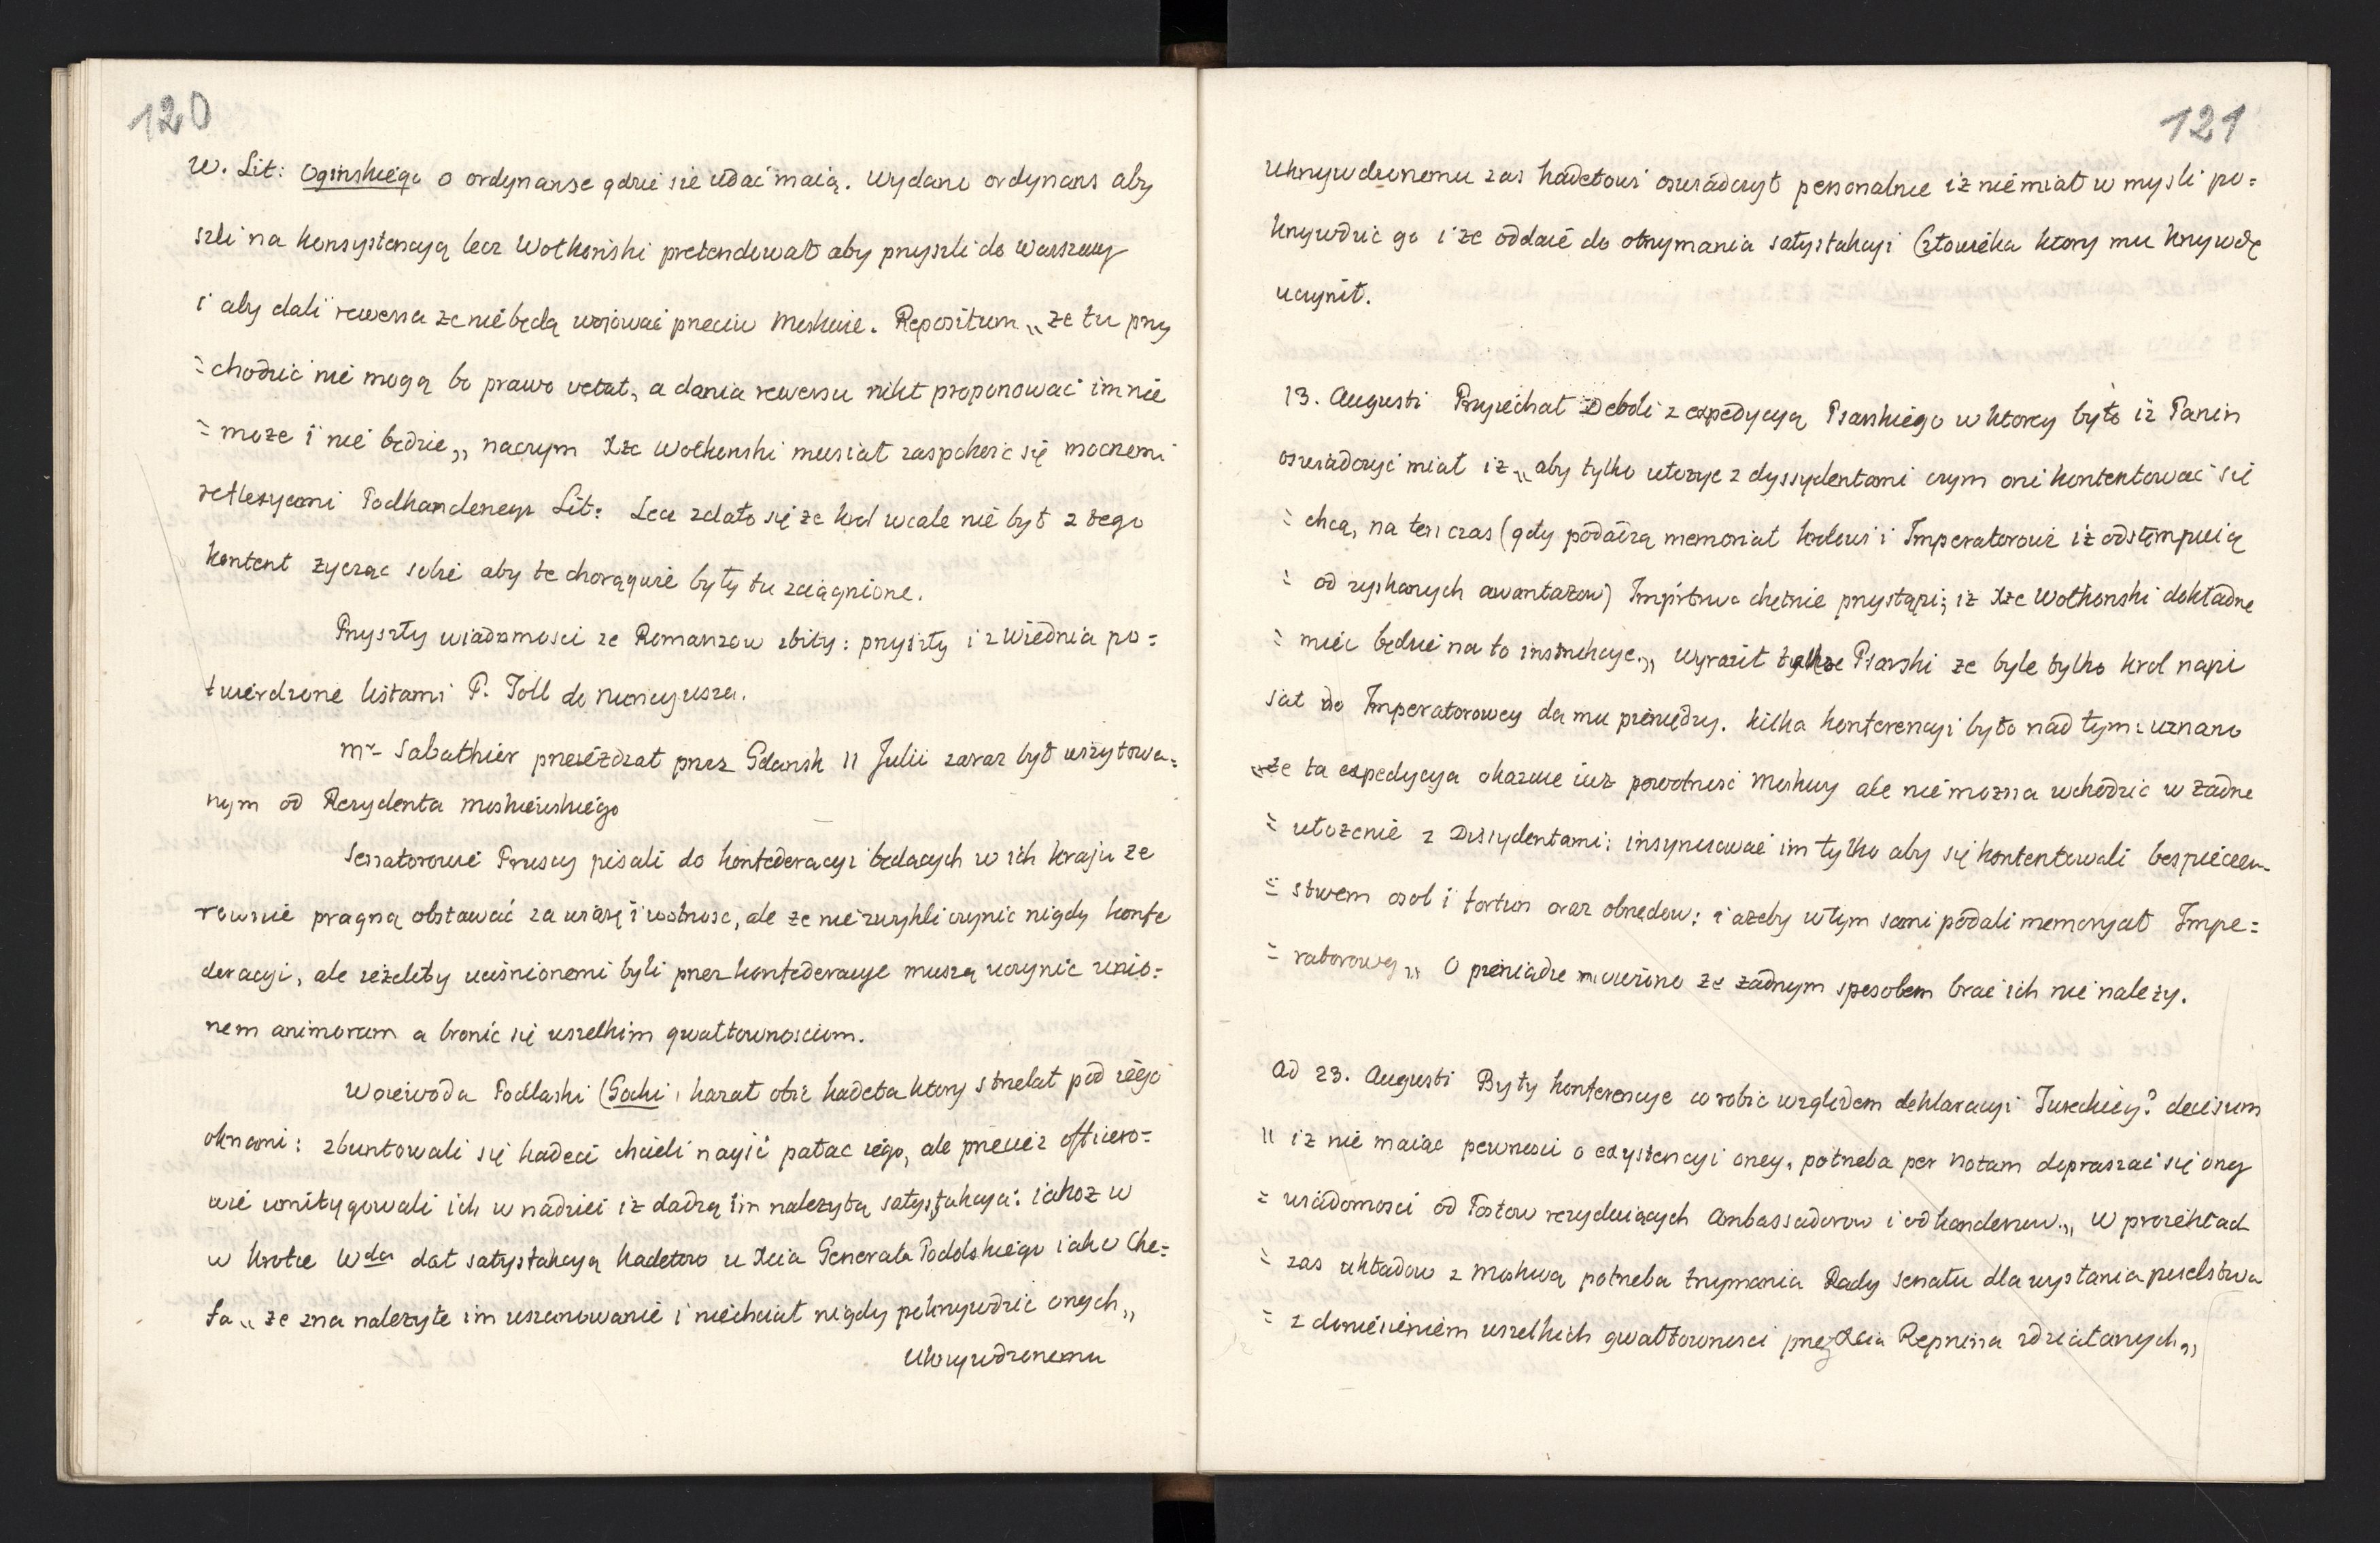 120
W. Lit: Oginskiego o ordynanse gdzie sie udać maią. Wydano ordynans aby
szli na konsystencyą lecz Wołkoński pretendował aby przyszli do Warszawy
i aby dali rewersa ze nie będą woiować przeciw Moskwie. Repositum „ ze tu przy
= chodzić nie mogą bo prawo vetat, a dania rewersu nikt proponować im nie
= moze i nie będzie „ naczym Xże Wołkonski musiał zaspokoic się mocnemi
reflexyami Podkanclerzego Lit: Lecz zdało się ze krol wcale nie był z tego
kontent zycząc sobie aby te chorągwie były tu zciągnione.
Przyszły wiadomosci ze Romanzow zbity: przyszły i z Wiednia po=
twierdzone listami P. Toll do Nuncyusza.
Mr Sabathier przeiézdzał przez Gdansk 11 Julii zaraz był wizytowa=
nym od Rezydenta Moskiewskiégo
Senatorowie Pruscy pisali do konfederacyi będących w ich kraju ze
rownie pragną obstawać za wiarę i wolnosc, ale ze nie zwykli czynic nigdy konfe
deracyi, ale iéżeliby uciśnionemi byli przez konfederacye muszą uczynic unio=
nem animorum a bronic się wszelkim gwałtownosciom.
Woiewoda Podlaski (Gocki, kazał obić kadeta ktory strzelał pod iégo
oknami: zbuntowali się kadeci chcieli nayić pałac iégo, ale przeciéz officero=
wie umitygowali ich w nadziei iz dadzą im nalezytą satysfakcyą: iakoz w
w krotce Wda dał satysfakcyą kadetow u Xcia Generała Podolskiégo iako Che=
fa „ ze zna nalezyte im uszanowanié i niechciał nigdy pokrzywdzic onych „
Ukrzywdzonemu
121
Ukrzywdzonemu zas kadetowi oswiadczył personalnie iz niémiał w mysli po=
krzywdzic go i ze oddaie do otrzymania satysfakcyi Człowiéka ktory mu krzywdę
uczynił.
13. Augusti Przyiéchał Deboli z expedycyą Psarskiégo w ktorey było iz Panin
oswiadczyć miał iz „ aby tylko ułozyc z dyssydentami czym oni kontentować się
= chcą, na ten czas (gdy podadzą memoriał krolowi i Imperatorowie iz odstempuią
= od zyskanych awantazow) Impírtwo chętnie przystąpi; iz Xże Wołkonski dokładne
= miéc będzie na to instrukcye. „ wyraził także Psarski ze byle tylko krol napi
sał do Imperatorowey da mu piéniędzy. kilka konferencyi było nad tym: uznano
„ ze ta expedycya okazuie iuz powolnosć Moskwy ale nie mozna wchodzic w żadne
= ułozenié z Dissydentami: insynuowac im tylko aby się kontentowali bespieczen
= stwem osob i fortun oraz obrzędow: i azeby w tym sami podali memoryał Impe=
= ratorowey „ O piéniądze mowiono ze żadnym sposobem brac ich nie nalezy.
ad 23. Augusti Były konferencye co robic względem deklaracyi Tureckiéy? decisum
„ iz nie maiąc pewnosci o exystencyi oney, potrzeba per notam dopraszać się oney
= wiadomosci od Posłow rezyduiących Ambassadorow i od kanclerzow. „ W proiéktach
= zas układow z Moskwą potrzeba trzymania Rady Senatu dla wysłania poselstwa
= z doniésieniém wszelkich gwałtownosci przez Xcia Repnina zdziałanych „